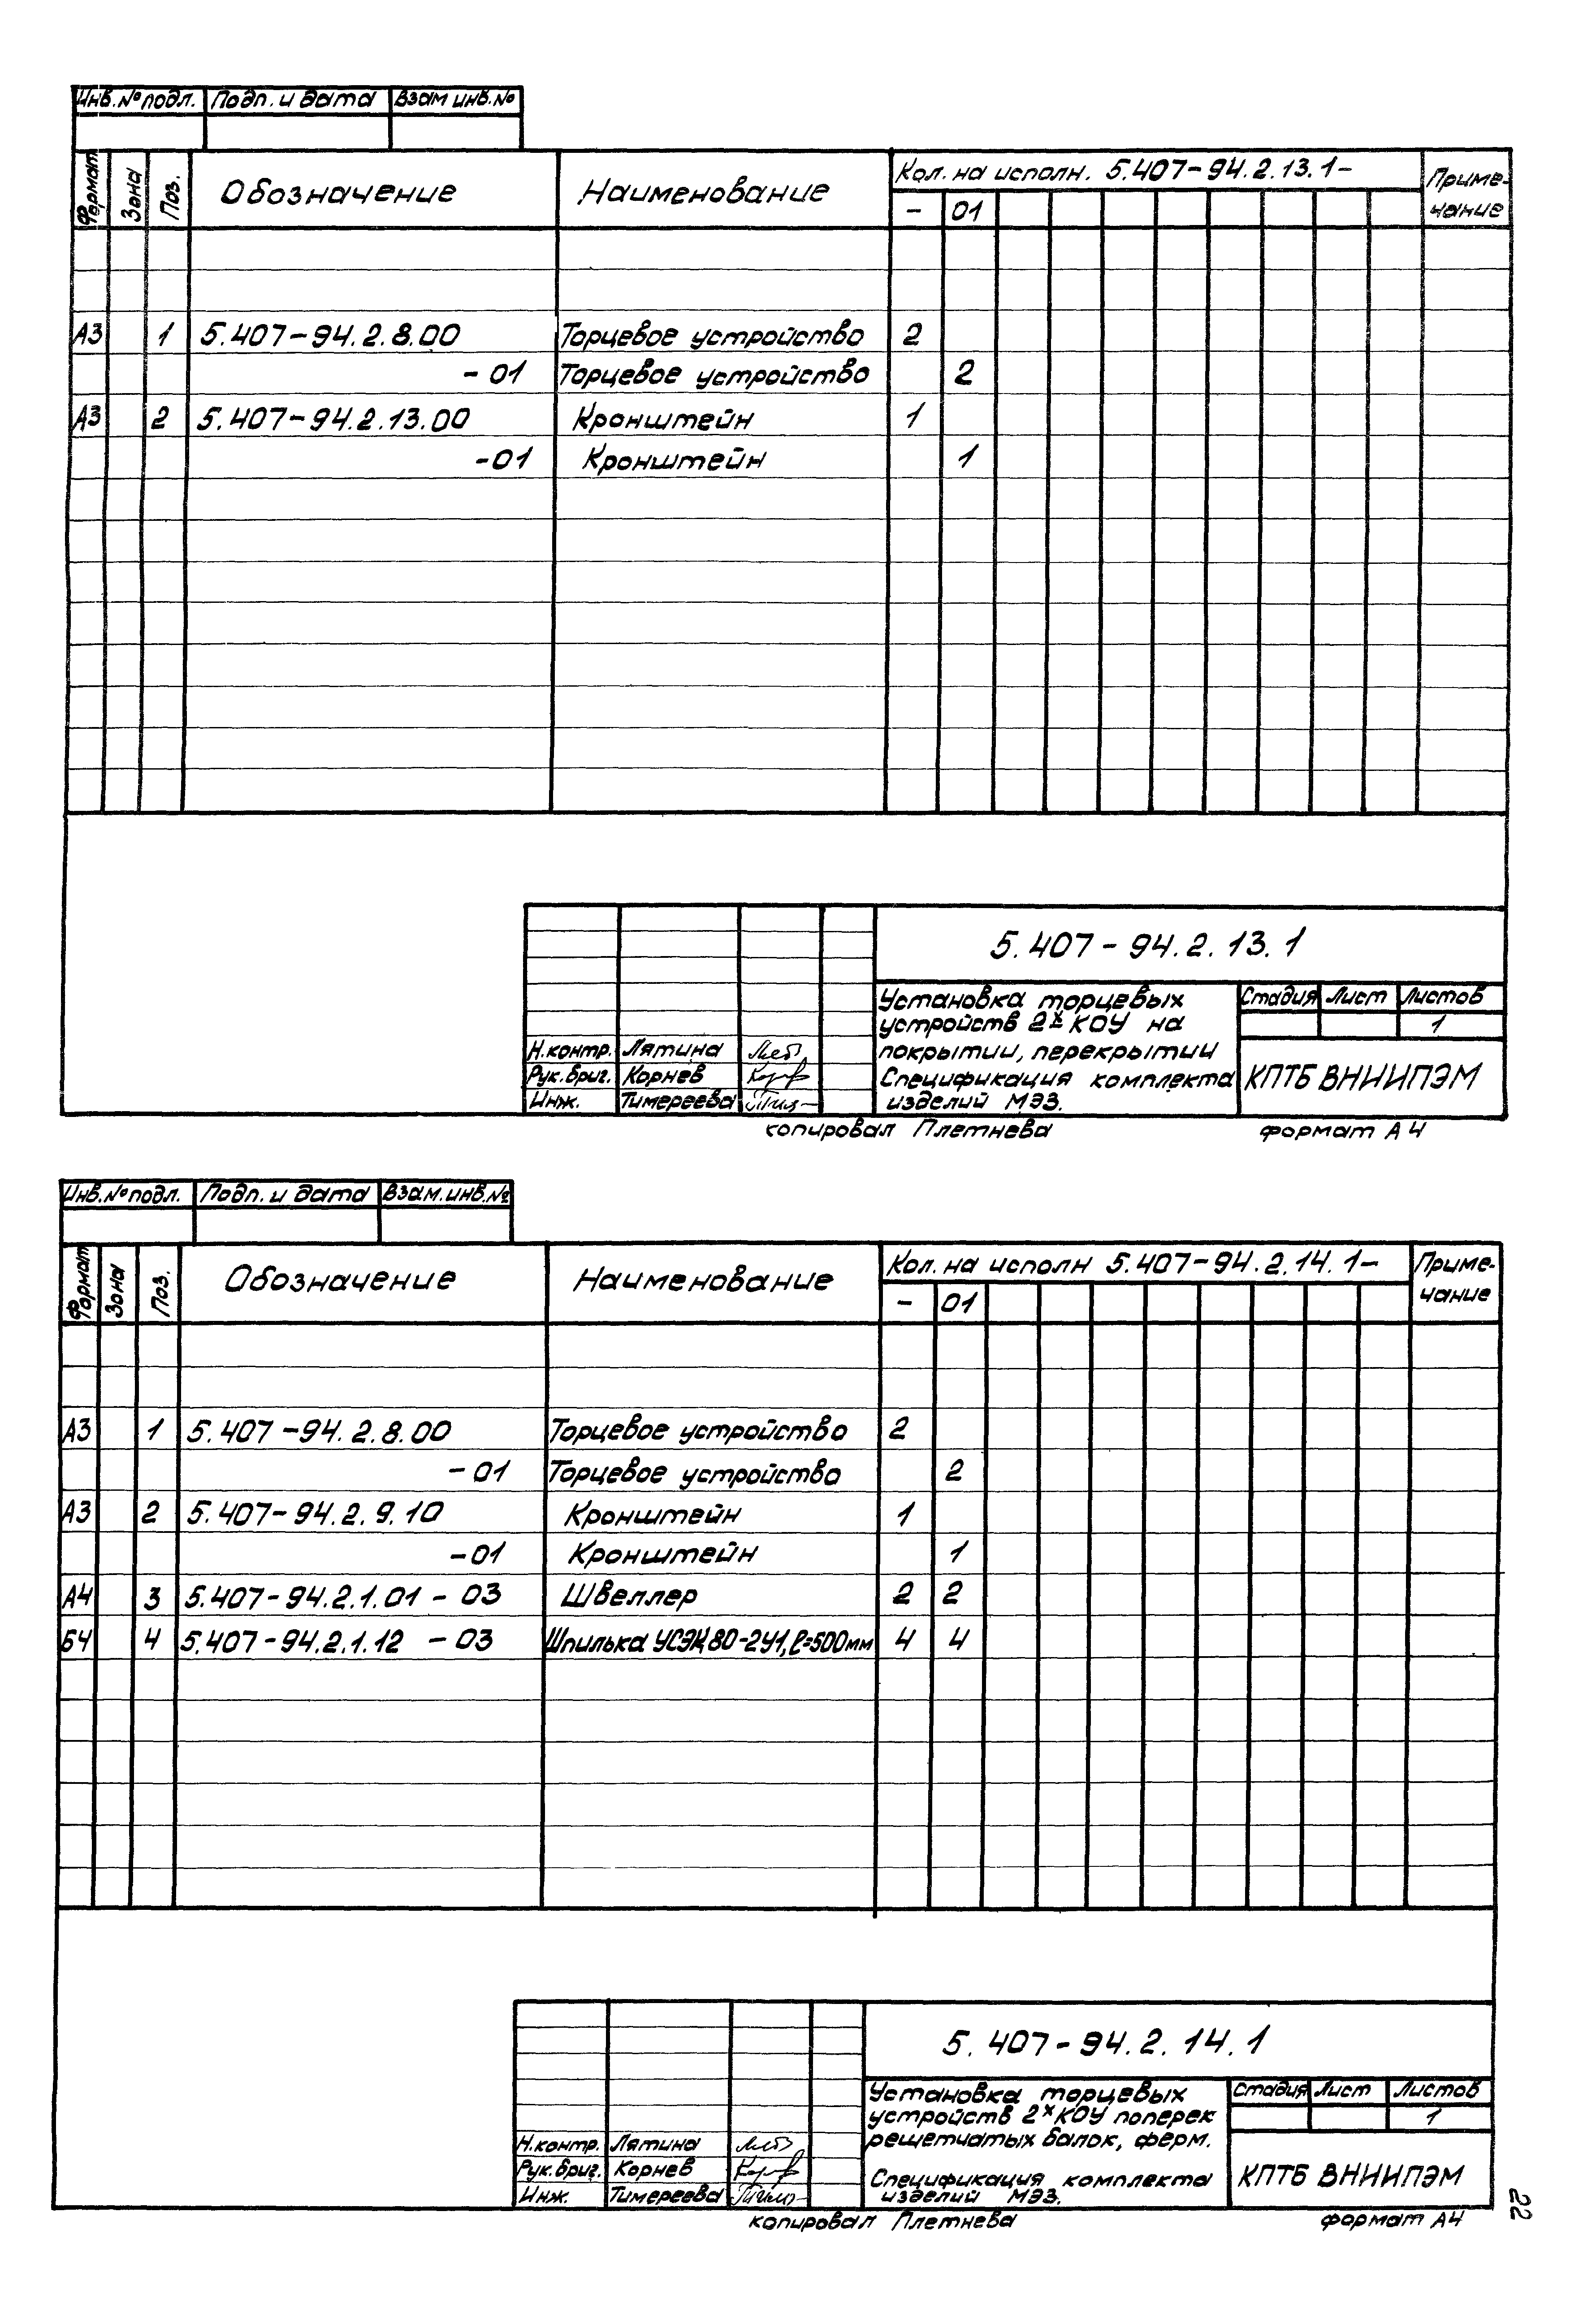 Инв.№ подл. Подп. и дата Взам инв.№
Формат Зона Поз. Обозначение Наименование Кол. на исполн. 5.407-94.2.13.1- Приме-
- 01 чание
А3 1 5.407-94.2.8.00 Торцевое устройство 2
-01 Торцевое устройство 2
А3 2 5.407-94.2.13.00 Кронштейн 1
-01 Кронштейн 1
5.407-94.2.13.1
Установка торцевых Стадия Лист Листов
устройств 2х КОУ на 1
Н.контр. Лятина покрытии, перекрытии
Рук.бриг. Корнев Спецификация комплекта КПТБ ВНИИПЭМ
Инж. Тимереева изделий МЭЗ.
копировал Плетнева формат А4
Инв.№ подл. Подп. и дата Взам.инв.№
Формат Зона Поз. Обозначение Наименование Кол. на исполн 5.407-94.2.14.1- Приме-
- 01 чание
А3 1 5.407-94.2.8.00 Торцевое устройство 2
-01 Торцевое устройство 2
А3 2 5.407-94.2.9.10 Кронштейн 1
-01 Кронштейн 1
А4 3 5.407-94.2.1.01-03 Швеллер 2 2
Б4 4 5.407-94.2.1.12 -03 Шпилька УСЭК 80-2У1, ℓ=500мм 4 4
5.407-94.2.14.1
Установка торцевых Стадия Лист Листов
устройств 2х КОУ поперек 1
Н.контр. Лятина решетчатых балок, ферм.
Рук.бриг. Корнев Спецификация комплекта КПТБ ВНИИПЭМ
Инж. Тимереева изделий МЭЗ.
копировал Плетнева формат А4
22